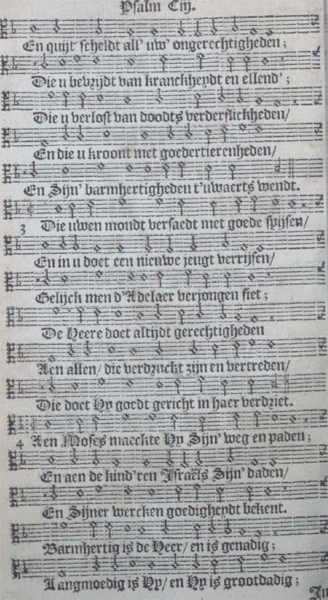 Psalm Ciij.
En quijt scheldt all' uw' ongerechtigheden;
Die u bevrijdt van kranckheydt en ellend';
Die u verlost van doodts verderflickheden/
En die u kroont met goedertierenheden/
En Sijn' barmhertigheden t'uwaerts wendt.
3 Die uwen mondt versaedt met goede spijsen/
En in u doet een nieuwe jeugt verrijsen/
Gelijck men d'Adelaer verjongen siet;
De Heere doet altijdt gerechtigheden
Aen allen/ die verdruckt zijn en vertreden/
Die doet Hy goedt gericht in haer verdriet.
4 Aen Moses maeckte Hy Sijn' weg en paden;
En aen de kind'ren Israëls Sijn' daden/
En Sijner wercken goedigheydt bekent.
Barmhertig is de Heer/ en is genadig;
Langmoedig is Hy/ en Hy is grootdadig;
In